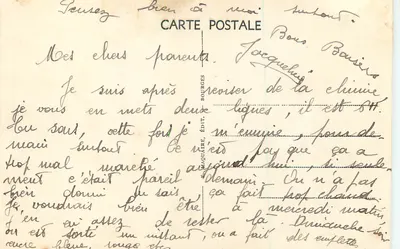 Pensez bien à moi surtout.
CARTE POSTALE
Bons Baisers
Jacqueline
Mes chers parents.
Je suis après reviser de la chimie
je vous en mets deux lignes, il est 6H
tu sais, cette fois je m'ennuie, pour de-
main surtout Ce n'est pas que ça a
trop mal marché aujourd'hui, si seule-
ment c'était pareil demain. On n'a pas
bien dormi tu sais, ça fait trop chaud
Je voudrais bien être à mercredi matin
j'en ai assez de rester là. Dimanche soir
on est sorti un instant, on a fait des emplettes